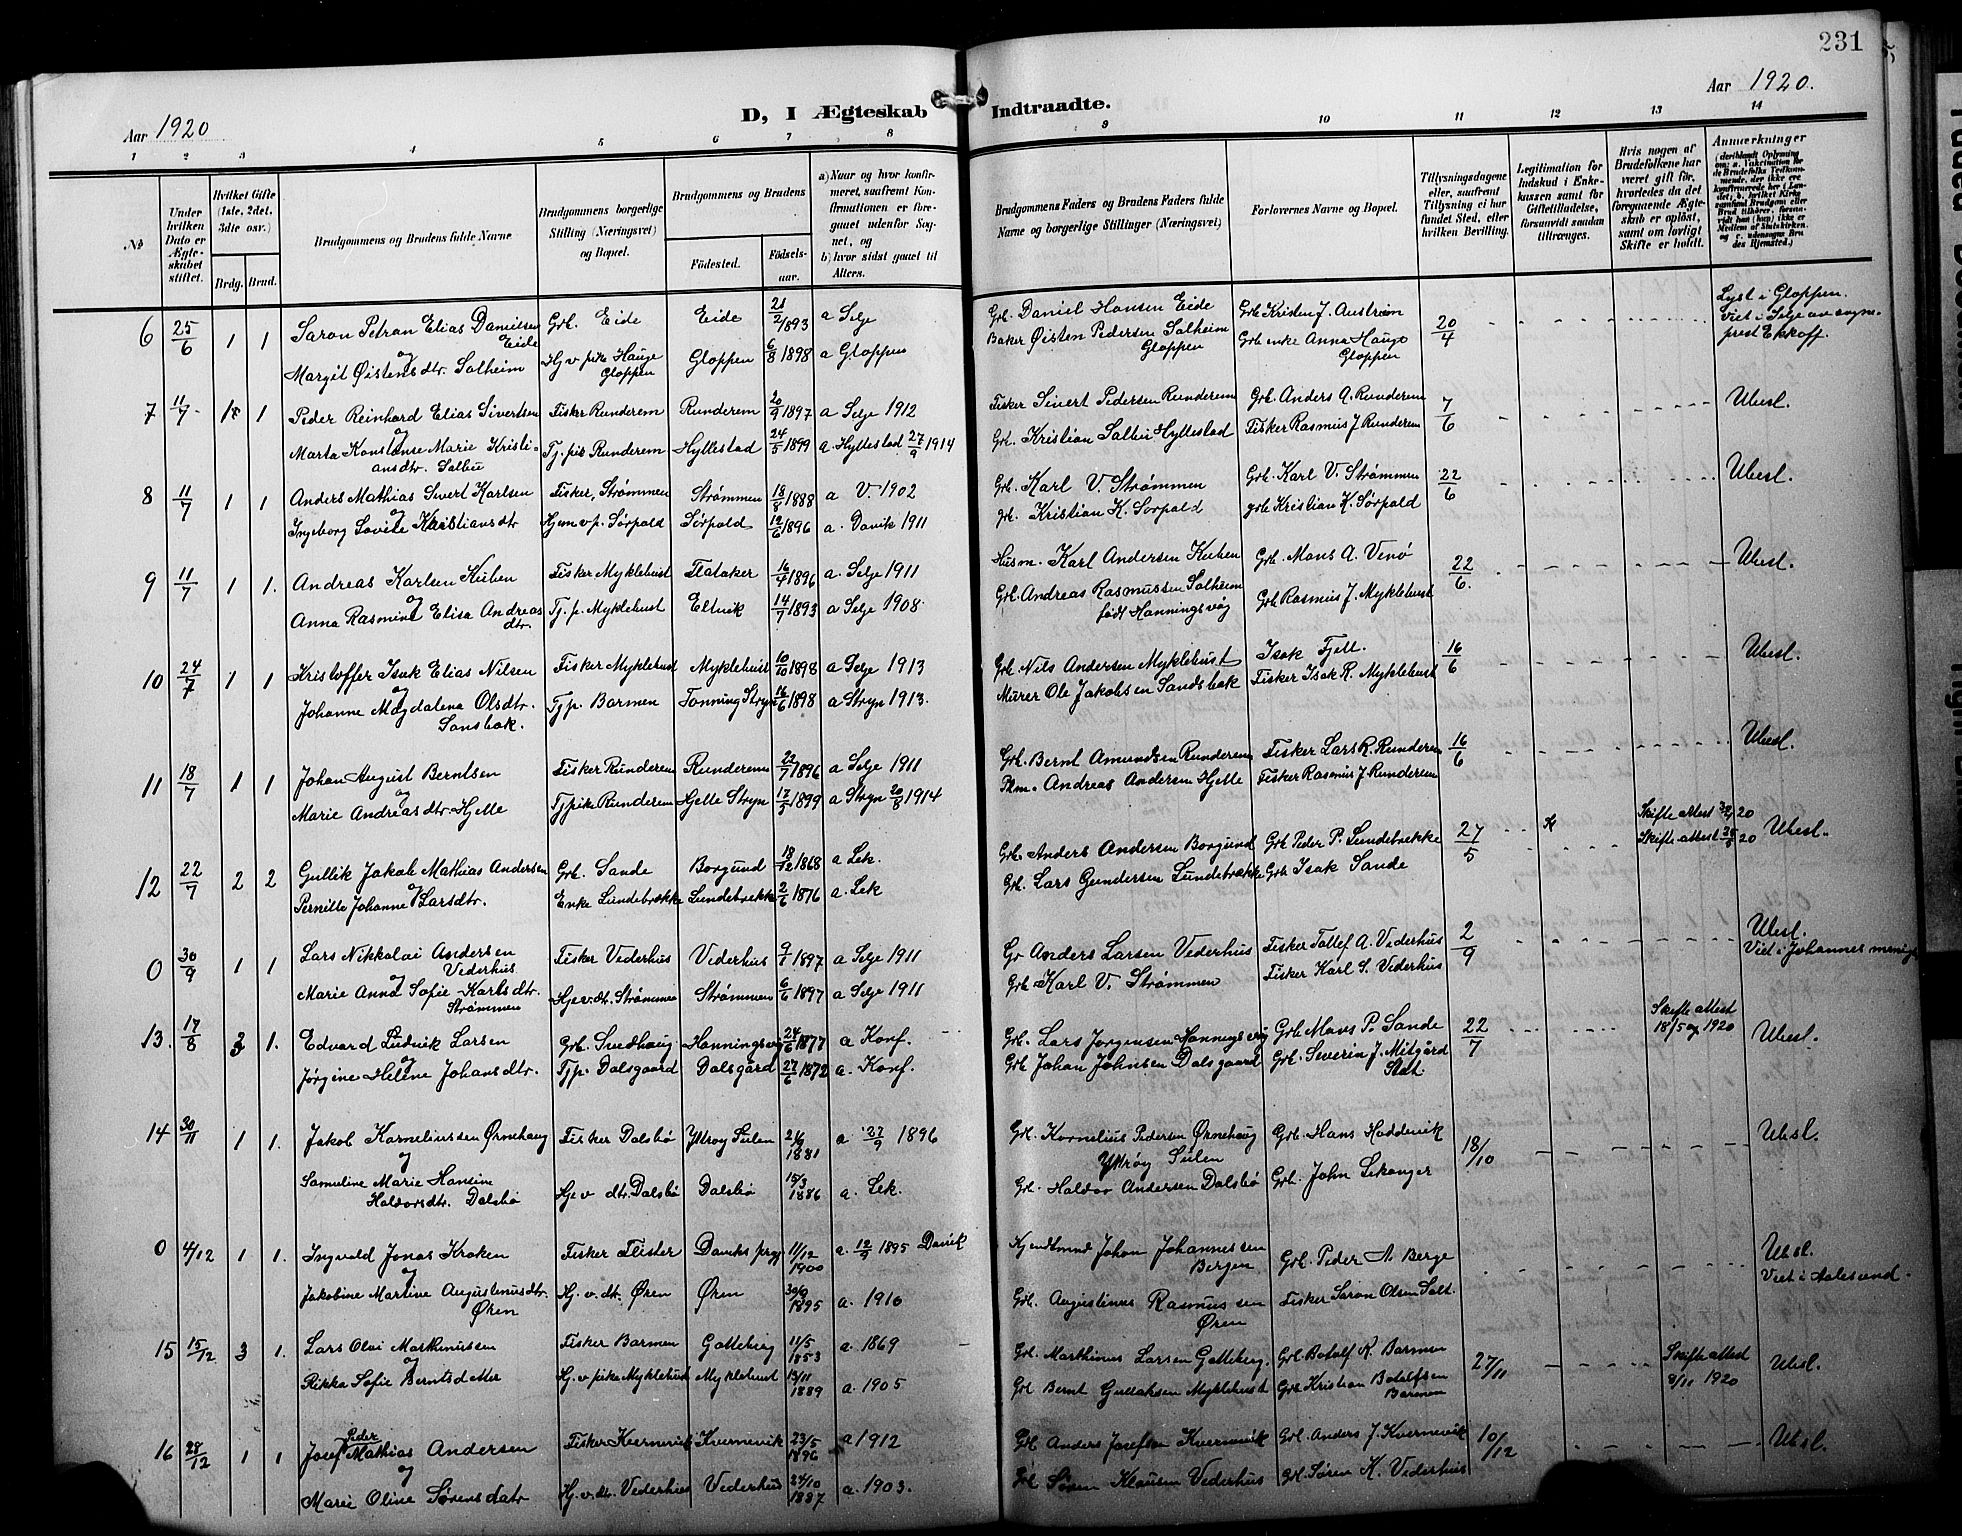 231
Aar 1920
D, I Ægteskab Indtraadte.
Aar 1920.
1 2 3 4 5 6 7 8 9 10 11 12 13 14
№
Under hvilken Dato er Ægteskabet stiftet.
Hvilket Gifte (1ste, 2det, 3die osv.)
Brdg. Brud.
Brudgommens og Brudens fulde Navne
Brudgommens borgerlige Stilling (Næringsvei) og Bopæl.
Brudgommens og Brudens
Fødested. Fødselsaar.
a) Naar og hvor konfirmeret, saafremt Konfirmationen er foregaaet udenfor Sognet, og
b) hvor sidst gaaet til Alters.
Brudgommens Faders og Brudens Faders fulde Navne og borgerlige Stillinger (Næringsvei)
Forlovernes Navne og Bopæl.
Tillysningsdagene eller, saafremt Tillysning ei har fundet Sted, efter hvilken Bevilling.
Legitimation for Indskud i Enkekassen samt for Giftetilladelse, forsaavidt saadan tiltrænges.
Hvis nogen af Brudefolkene har været gift før, hvorledes da det foregaaende Ægteskab er opløst, samt om lovligt Skifte er holdt.
Anmærkninger
6 25/6 1 1 Saron Petran Elias Danielsen Eide Grb. Eide Eide 21/2 1893 a Selje Grb. Daniel Hansen Eide Grb Kristen J. Austrem 20/4 Lyst i Gloppen. Viet i Selje av sogneprest Ekkoff.
og
Margit Øistensdtr. Solheim Hj v pike Hauge Gloppen Gloppen 6/8 1898 a Gloppen Baker Øisten Pedersen Solheim Gloppen Grb enke Anna Hauge Gloppen
7 11/7 1 1 Peder Reinhard Elias Sivertsen Fisker Runderem Runderem 20/9 1897 a Selje 1912 Fisker Sivert Pedersen Runderem Grb. Anders A. Runderem 7/6 Ubesl.
og
Marta Konstanse Marie Kristiansdtr. Salbu Tj. pik Runderem Hyllestad 24/5 1899 a Hyllestad 27/9 1914 Grb. Kristian Salbu Hyllestad Fisker Rasmus J Runderem
8 11/7 1 1 Anders Mathias Sivert Karlsen Fisker, Strømmen Strømmen 18/8 1888 a V. 1902 Grb. Karl V. Strømmen Grb. Karl V. Strømmen 22/6 Ubesl.
og
Ingeborg Lovise Kristiansdtr Hjem v p. Sørpald Sørpald 12/6 1896 a. Davik 1911 Grb. Kristian K. Sørpald grb Kristian K. Sørpald
9 11/7 1 1. Andreas Karlsen Kuben Fisker Myklebust Flataker 16/4 1896 a. Selje 1911 Husm. Karl Andersen Kuben Grb. Mons A. Venø 22/6. Ubesl.
og
Anna Rasmine Elisa Andreasdtr. Tj. p. Myklebust Eltvik 14/7 1893 a Selje 1908. Grb. Andreas Rasmussen Solheim født Hanningsvåg Grb Rasmus J. Myklebust
10 24/7 1 1 Kristoffer Isak Elias Nilsen Fisker Myklebust Myklebust 10/10 1898 a Selje 1913 Grb Nils Andersen Myklebust Isak Fjell. 16/6 Ubesl.
og
Johanne Magdalena Olsdtr. Sansbak. Tjp. Barmen Tonning Stryn 16/6 1898 a Stryn 1913. Murer Ole Jakobsen Sandsbak Fisker Isak R. Myklebust
11 18/7 1 1 Johan August Berntsen Fisker Runderem Runderem 22/7 1896 a Selje 1911 Grb. Bernt Amundsen Runderem Fisker Lars R. Runderem 16/6 Ubesl.
og
Marie Andreasdtr. Hjelle Tjpike Runderem Hjelle Stryn 17/3 1899 a Stryn 20/8 1914 Plm. Andreas Andersen Hjelle Fisker Rasmus J Runderem
12 22/7 2 2 Gullik Jakob Mathias Andersen Grb. Sande Borgund 18/12 1868 a Lek. Grb. Anders Andersen Borgund Grb Peder P. Lundebrekke 27/5 Skifte Attest 20 Ubesl.
og
Pernille Johanne Larsdtr. Enke Lundebrække Lundebrække 2/6 1876 a. Lek Grb. Lars Gundersen Lundebrække Grb Isak Sande Skifte attest 20
0 30/9 1 1 Lars Nikkolai Andersen Vederhus Fisker Vederhus Vederhus 9/7 1897 a Selje 1911 Gr Anders Larsen Vederhus Fisker Tollef A. Vederhus 2/9 Ubesl. Viet i Johannes menigh
og
Marie Anna Sofie Karlsdtr. Strømmen Hje v. dt. Strømmen Strømmen 6/6 1897 a Selje 1911 Grb Karl V. Strømmen Fisker Karl S. Vederhus
13. 17/8 1. Edvard Ludvik Larsen Grb. Sundhaug Hanningsvåg 24/6 1877 a Konf. Grb. Lars Jørgensen Hanningsvåg Grb Mons P. Sande 22/7 Skifte attest 18/5 1920 Ubesl.
og
Jørgine Helene Johansdtr. Tjp. Dalsgaard Dalsgård 27/6 1872 a. Konf. Grb Johan Johnsen Dalsgaard Grb. Severin J. Mitgård Stat.
14 30/11 1 1. Jakob Korneliussen Ørnehaug Fisker Dalsbø Ytrøy Sulen 1881 a 27/9 1896 Grb. Kornelius Pedersen Ørnehaug Ytrøy Sulen Grb. Hans Haddevik 18/10 Ubesl.
og
Samuline Marie Hansine Haldorsdtr. Dalsbø Hj v dtr. Dalsbø Dalsbø 15/3 1886 a. Lek. Grb. Haldor Andersen Dalsbø Grb. John Lekanger
0 4/12 1 1. Ingvald Jonas Kroken Fisker Flister Daviks prgj 11/12 1900 a. 12/9 1895 Davik Johan Johannessen Bergen Grb. Peder A Berge Ubsl.
og
Jakobine Martine Augustinusdtr. Øren Hj. v. dt. Øren Øren 30/9 1895 a. 1910 Grb. Augustinus Rasmussen Øren Fisker Saron Olsen Salt. Viet i Aalesund.
15 15/12 3 1. Lars Olai Marthinussen Fisker Barmen Gotteberg 11/5 1853 a. 1869 Grb. Marthinus Larsen Gotteberg. Grb. Botolf R. Barmen 27/11 Skifte attest 8/11 1920 Ubesl.
og
Rikka Sofie Berntsdatter Hj. v pike Myklebust Myklebust 13/11 1889 a. 1905 Grb Bernt Gullaksen Myklebust Grb Kristian Botolfsen Barmen
16 28/12 1 1 Josef Peder Mathias Andersen Fisker Kvernevik Kvernevik 23/5 1896 a 1912 Grb Anders Josefsen Kvernevik Grb. Anders J. Kvernevik 10/12 Ubsl.
og
Marie Oline Sørensdatr Hj. v. dtr. Vederhus Vederhus 24/10 1887 a. 1903. Grb Søren Klausen Vederhus Grb. Søren K. Vederhus